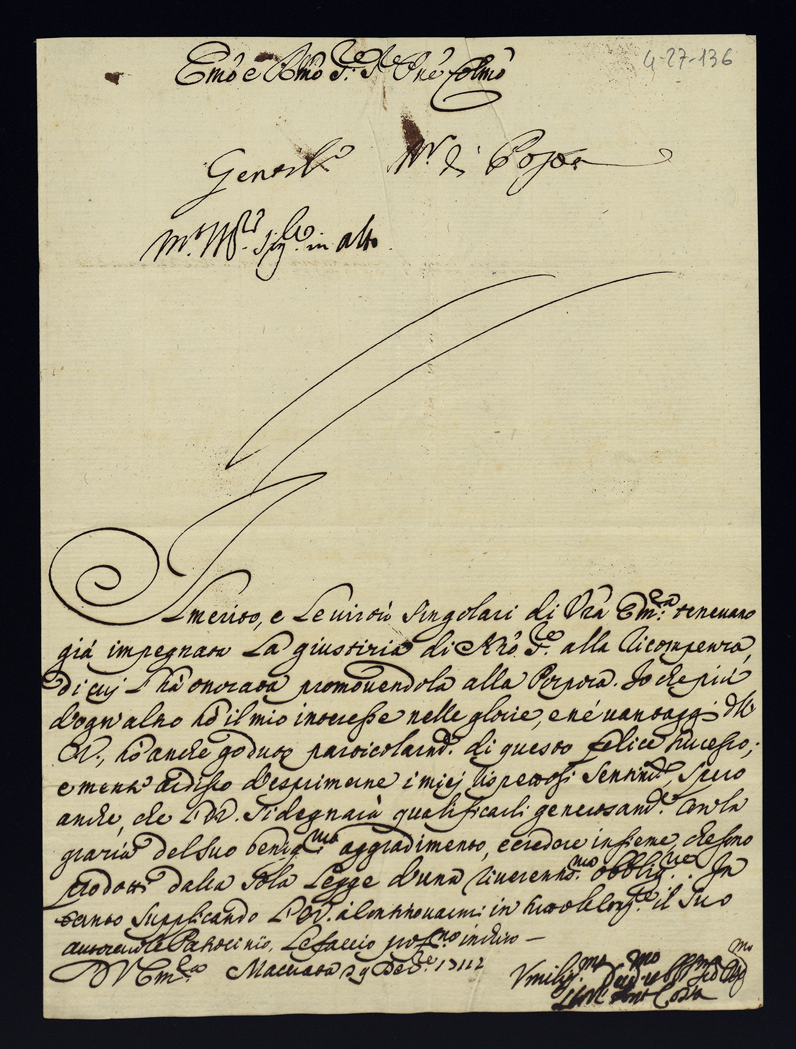 4-27-136
Emo e Rmo Sr. Sr. Pne Colmo
Il merito, e le virtù singolari di Vra Emza. tenevano
già impegnata la giustizia di Nro. Sre. alla ricompensa,
di cui l'hà onorata promovendola alla Porpora. Io che più
d'ogn'altro hò il mio interesse nelle glorie, e né vantaggi dell'
E.V., hò anche goduto particolarmte. di questo felice successo;
e mentre ardisco d'esprimerne i miej rispettosi sentimti, spero
anche, che l'E.V. si degnarà qualificarli generosamte. con la
grazia del suo benigmo. aggradimento, e credere insieme, che sono
prodotti dalla sola legge d'una riverentma. obbligne. In
tanto supplicando l'E.V. à continovarmi in il suo
autorevole Patrocinio, le faccio profmo inchino —
D V Emza Macerata 29 1712
Umilismo